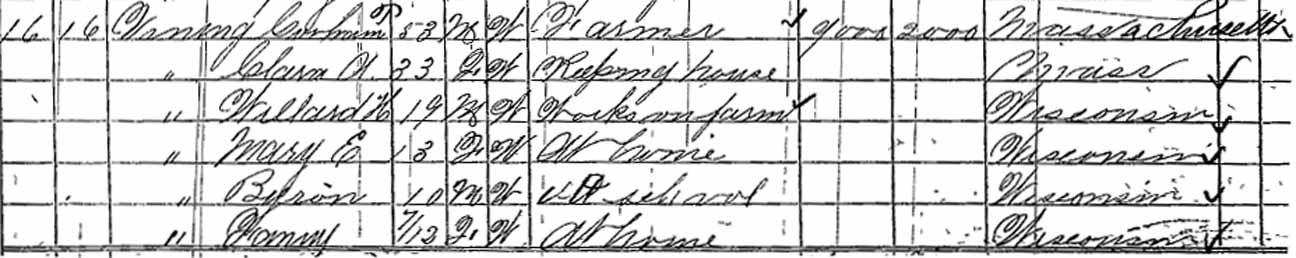 16 16 Vining Gorham P 53 M W Farmer ✓ 9000 2000 Massachusetts
" Clara A. 33 F W Keeping house Mass ✓
" Willard H 19 M W Works on farm ✓ Wisconsin
" Mary E 13 F W At home Wisconsin ✓
" Byron 10 M W At school Wisconsin ✓
" Fanny 7/12 F W At home Wisconsin ✓